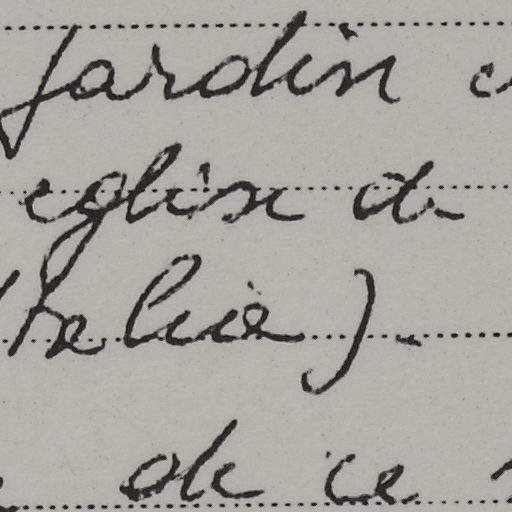 jardin
eglise de
Italie).
de ce